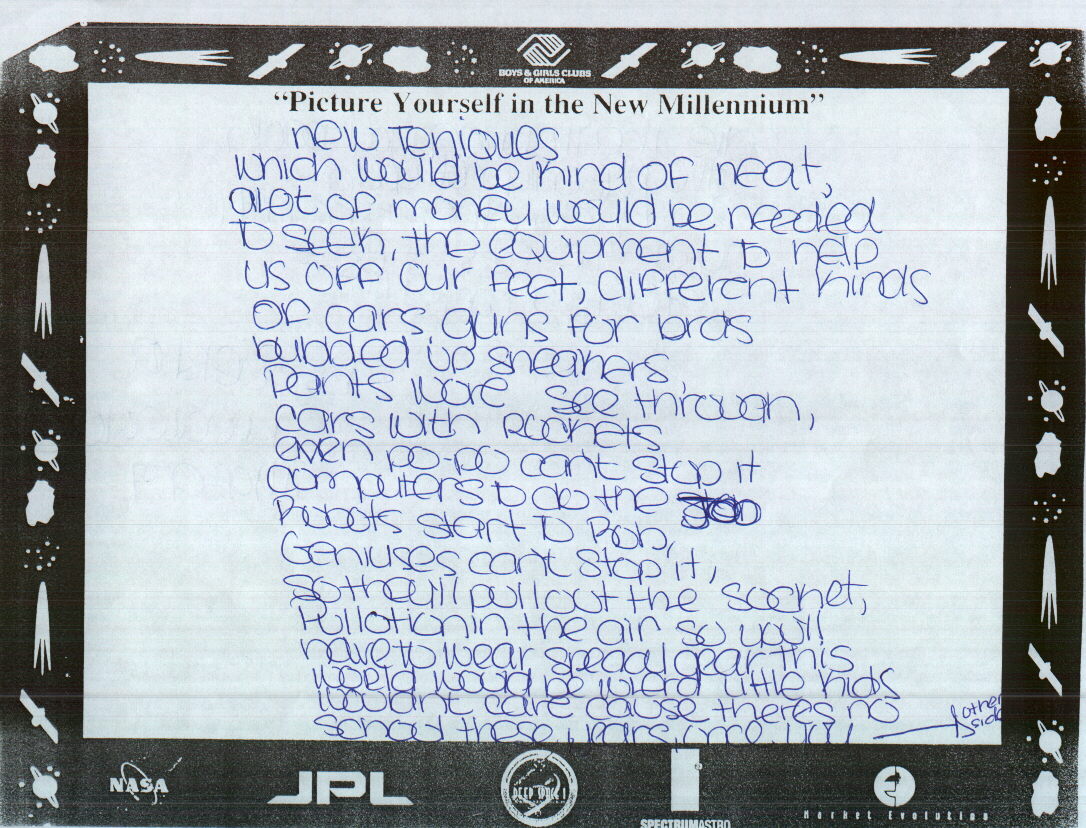 BOYS & GIRLS CLUBS
OF AMERICA
"Picture Yourself in the New Millennium"
new Teniques
which would be kind of neat,
alot of money would be needed
to seek, the equipment to help
us off our feet, different kinds
of cars, guns for brds
bubbled up sneakers,
Pants wore see through,
cars with Rockets
even po-po can't stop it
computers to do the JOB
Robots start to Rob,
Geniuses can't stop it,
so they'll pull out the socket,
Pullotion in the air so you'll
have to wear specal gear this
world would be wierd little kids
wouldnt care cause theres no
school these years, one you
other
side
NASA
JPL
DEEP SPACE 1
SPECTRUMASTRO
Market Evolution